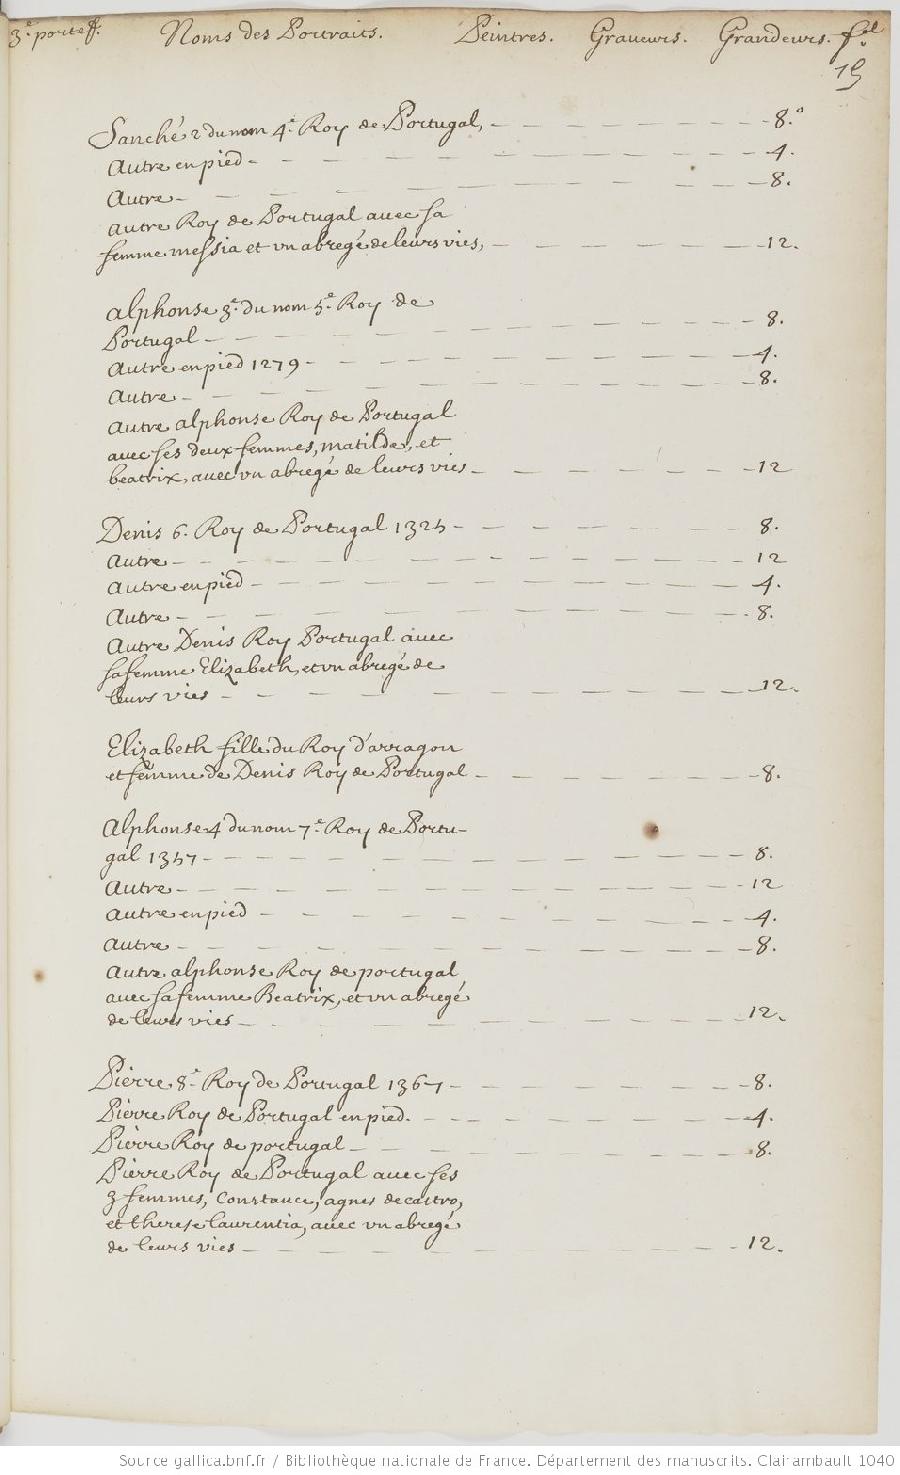 3.e portef. Noms des Portraits. Peintres. Graveurs. Grandeurs. f.el
15
Sanché 2 du nom 4.e Roy de Portugal, — 8.o
Autre en pied — 4.
Autre — 8.
autre Roy de Portugal avec sa
femme messia et vn abregé de leurs vies, — 12.
alphonse 3.e du nom 5.e Roy de
Portugal — 8.
Autre en pied 1279 — 4.
Autre — 8.
Autre alphonse Roy de Portugal
avec ses deux femmes, matilde, et
beatrix, avec vn abregé de leurs vies — 12
Denis 6. Roy de Portugal 1325 — 8.
Autre — 12
Autre en pied — 4.
Autre — 8.
Autre Denis Roy Portugal avec
sa femme Elizabeth, et vn abregé de
leurs vies — 12.
Elizabeth fille du Roy d'arragon
et femme de Denis Roy de Portugal — 8.
Alphonse 4 du nom 7.e Roy de Portu-
gal 1357 — 8.
Autre — 12
Autre en pied — 4.
Autre — 8.
Autre alphonse Roy de portugal
avec sa femme Beatrix, et vn abregé
de leurs vies — 12.
Pierre 8.e Roy de Portugal 1367 — 8.
Pierre Roy de Portugal en pied. — 4.
Pierre Roy de portugal — 8.
Pierre Roy de Portugal avec ses
3 femmes, Constance, agnes de castro,
et therese laurentia, avec vn abregé
de leurs vies — 12.
Source gallica.bnf.fr / Bibliothèque nationale de France. Département des manuscrits. Clairambault 1040